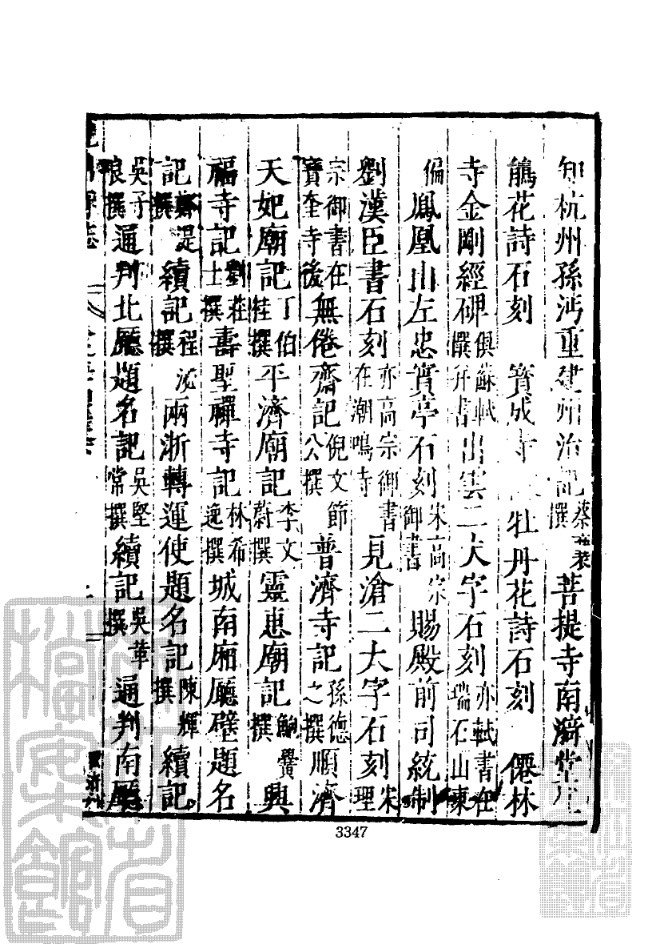 知杭州孫沔重建州治記蔡襄撰菩提寺南漪堂杜
鵑花詩石刻 寶成寺 牡丹花詩石刻 僊林
寺金剛經碑俱蘇軾撰并書出雲二大字石刻亦軾書在瑞石山東
偏鳳凰山左忠實亭石刻宋高宗御書 賜殿前司統制
劉漢臣書石刻亦高宗御書在潮鳴寺 見滄二大字石刻宋理
宗御書在寶奎寺後無倦齋記倪文節公撰 普濟寺記孫德之撰順濟
天妃廟記丁伯桂撰平濟廟記李文蔚撰靈惠廟記鮑撰興
福寺記劉莊士撰壽聖禪寺記林希逸撰城南廂廳壁題名
記鄭湜撰續記程泌撰兩浙轉運使題名記陳輝撰續記
吳子良撰通判北廳題名記吳堅常撰續記吳華撰通判南廳
3347